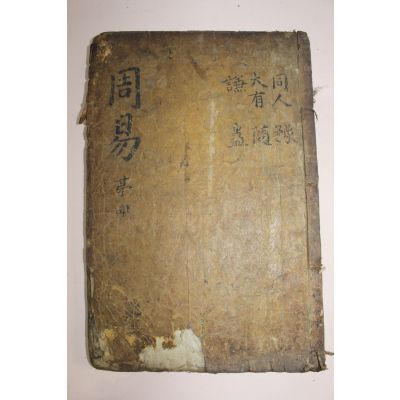 同人 豫
大有 隨
謙 蠱
周易 亨